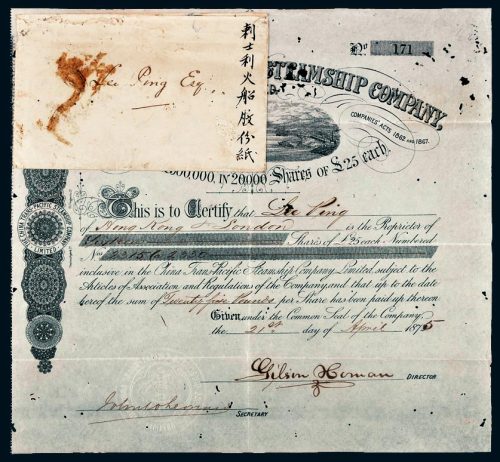 Lee Ping Esq.
刺士利火船股份紙
No 171
STEAMSHIP COMPANY,
COMPANIES' ACTS 1862 AND 1867.
IN 20,000 SHARES OF £25 each.
This is to Certify that Lee Ping
of Hong Kong & London is the Proprietor of
Shares of £25 each Numbered
inclusive in the China TransPacific Steamship Company Limited, subject to the
Articles of Association and Regulations of the Company, and that up to the date
hereof the sum of Twenty five Pounds per Share has been paid up thereon
Given under the Common Seal of the Company,
the 21st day of April 1875
DIRECTOR
SECRETARY
LIMITED